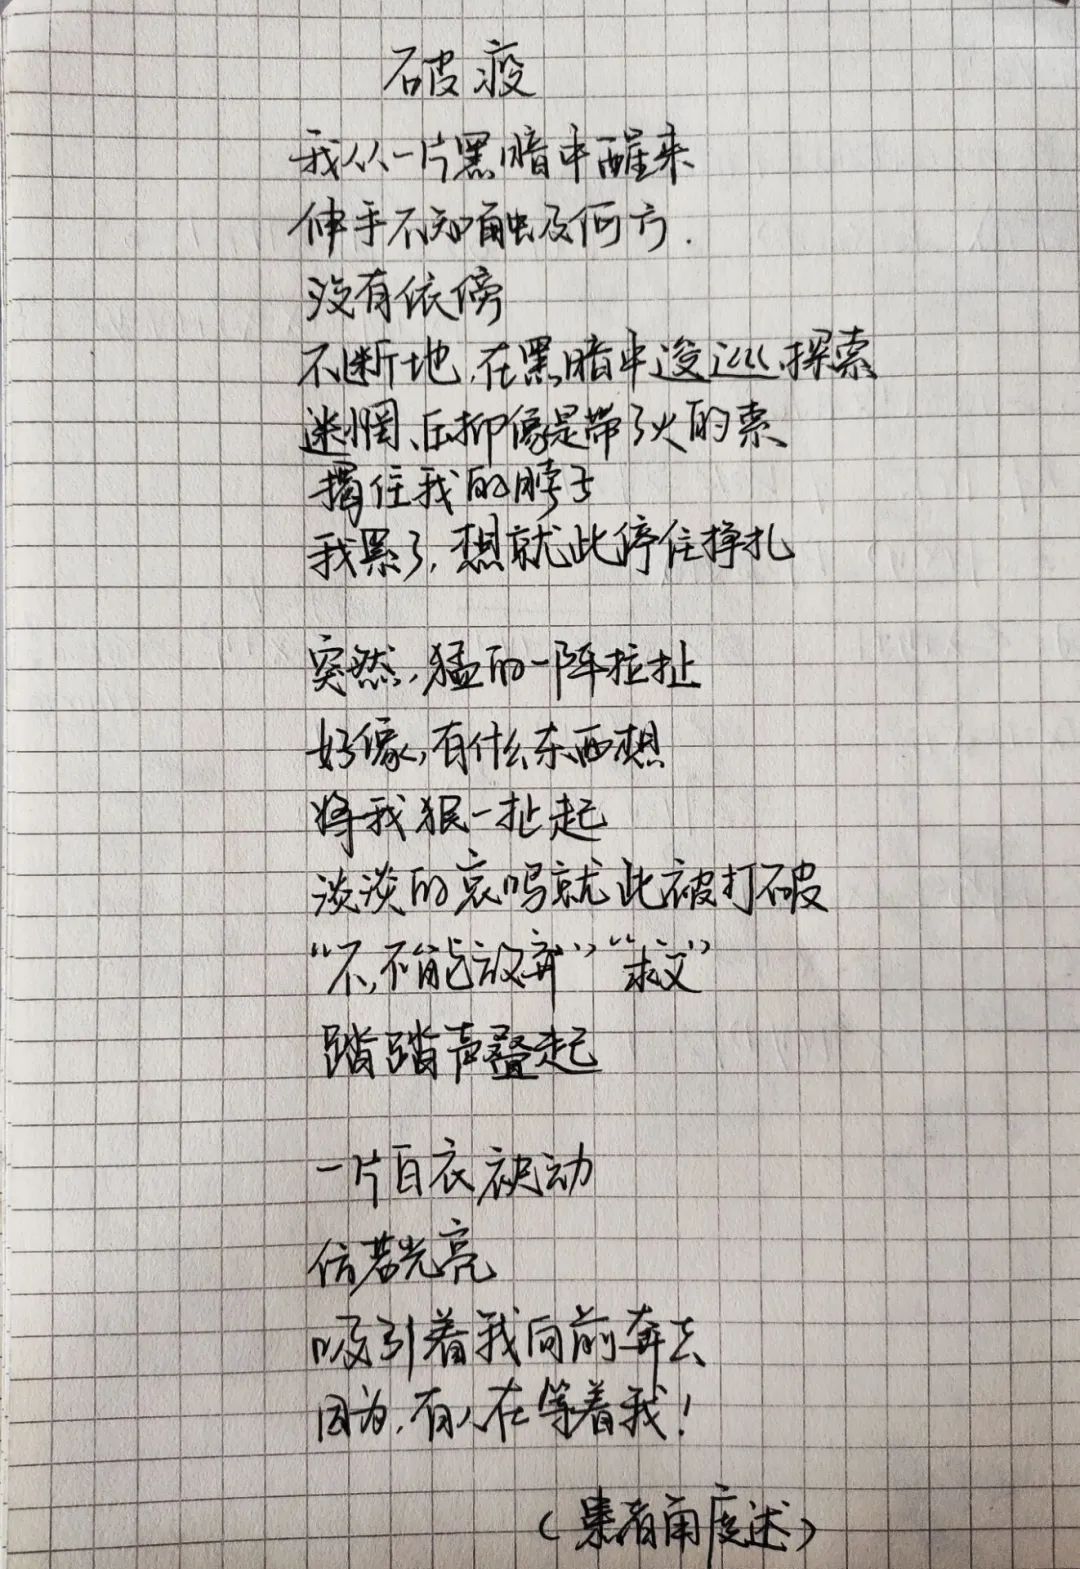 破疫
我从一片黑暗中醒来
伸手不知触及何方.
没有依傍
不断地,在黑暗中逡巡,探索
迷惘、压抑像是带了火的索
擭住我的脖子
我累了,想就此停住挣扎
突然,猛的一阵拉扯
好像,有什么东西想
将我狠一扯起
淡淡的哀鸣就此被打破
“不,不能放弃”“求文”
踏踏声叠起
一片白衣 动
仿若光亮
吸引着我向前奔去
因为,有人在等着我!
(患者角度述)